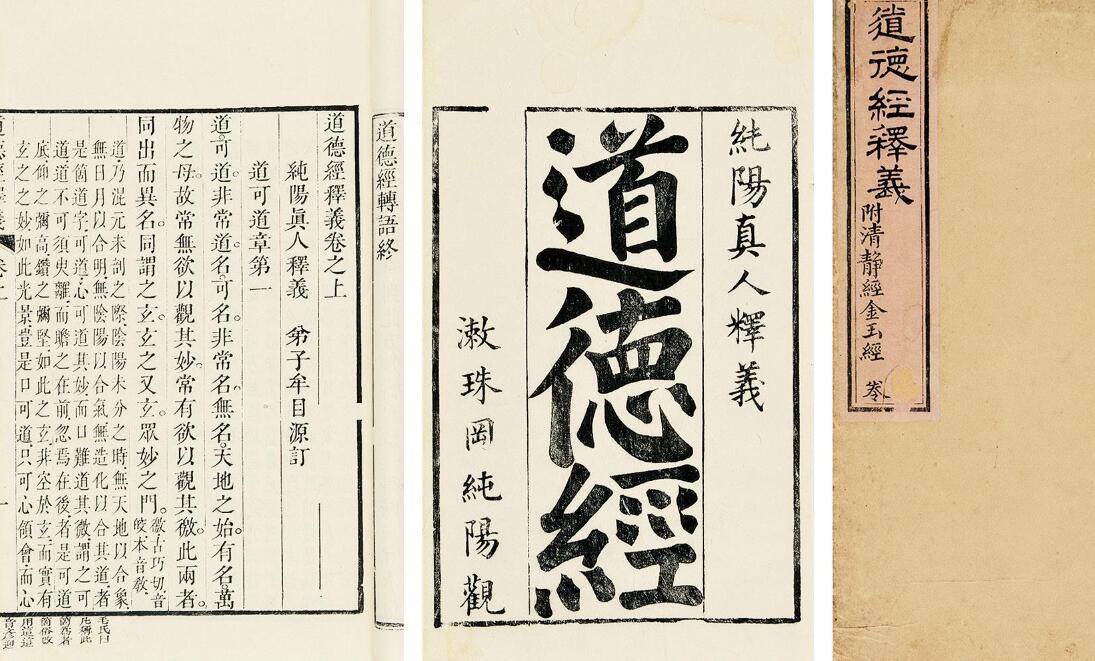 道德經釋義
附清靜經金玉經
純陽真人釋義
道德經
漱珠岡純陽觀
道德經轉語終
道德經釋義卷之上
純陽眞人釋義 弟子牟目源訂
道可道章第一
道。可道。非常道。名。可名。非常名。無名。天地之始。有名。萬
物之母。故常無欲以觀其妙。常有欲以觀其徼。此兩者。
同出而異名。同謂之玄。玄之又玄。眾妙之門。
徼古巧切音
皎本音敎
道乃混元未剖之際陰陽未分之時無天地以合象
無日月以合明無陰陽以合氣無造化以合其道者
是箇道字可道心可道其妙而口難道其微謂之可
道道不可須臾離而瞻之在前忽焉在後者是可道
底仰之彌高鑽之彌堅如此之玄非空於玄而實有
玄之之妙如此光景豈是口可道只可心領會而心
毛氏曰
凡稱此
箇爲者
箇俗改
用這這
音彥迎